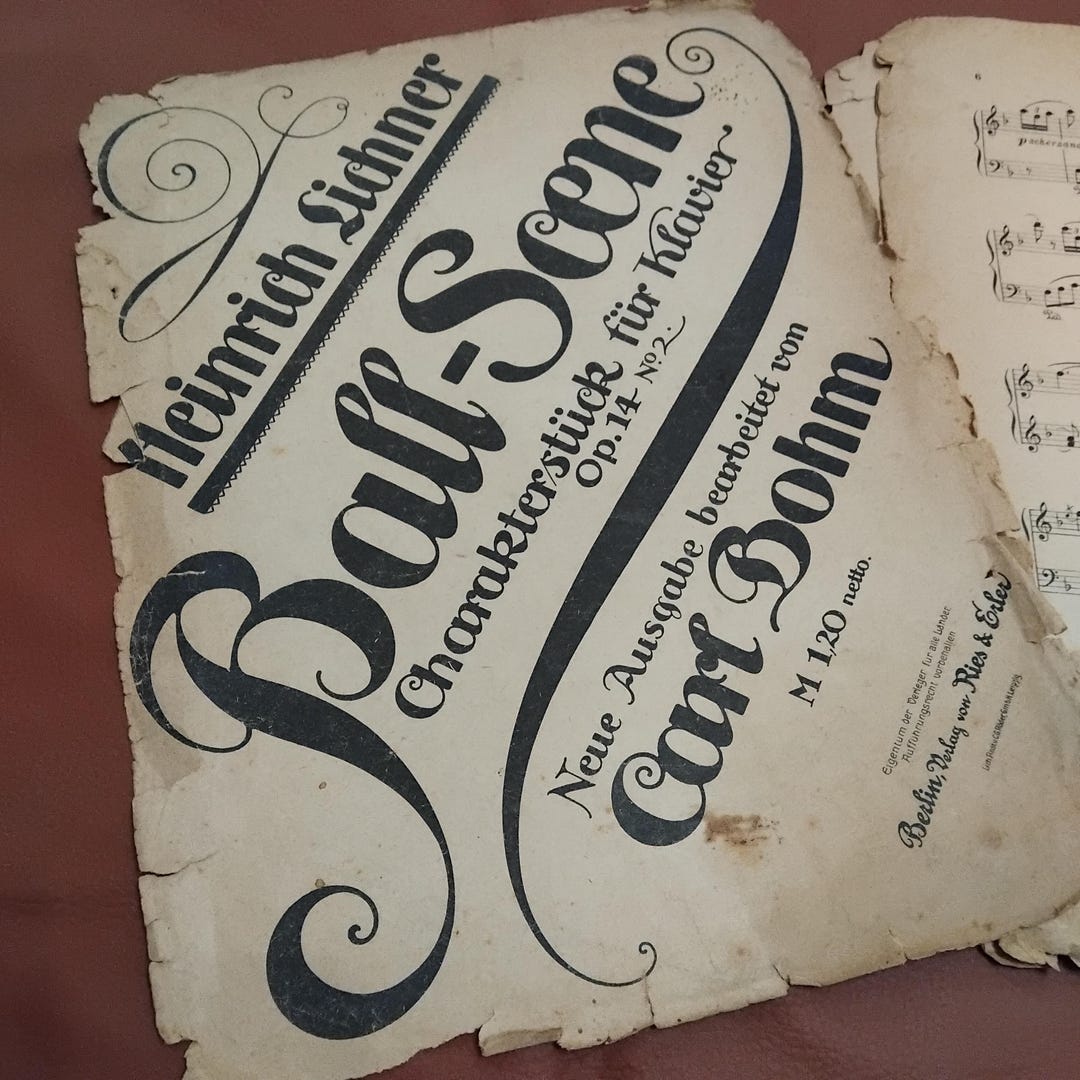 Heinrich Lichner
Ball-Scene
Charakterstück für Klavier
Op. 14 No. 2.
Neue Ausgabe bearbeitet von
Carl Bohm
M 1,20 netto.
Eigentum der Verleger für alle Länder.
Aufführungsrecht vorbehalten
Berlin, Verlag von Ries & Erler
6
p scherzand